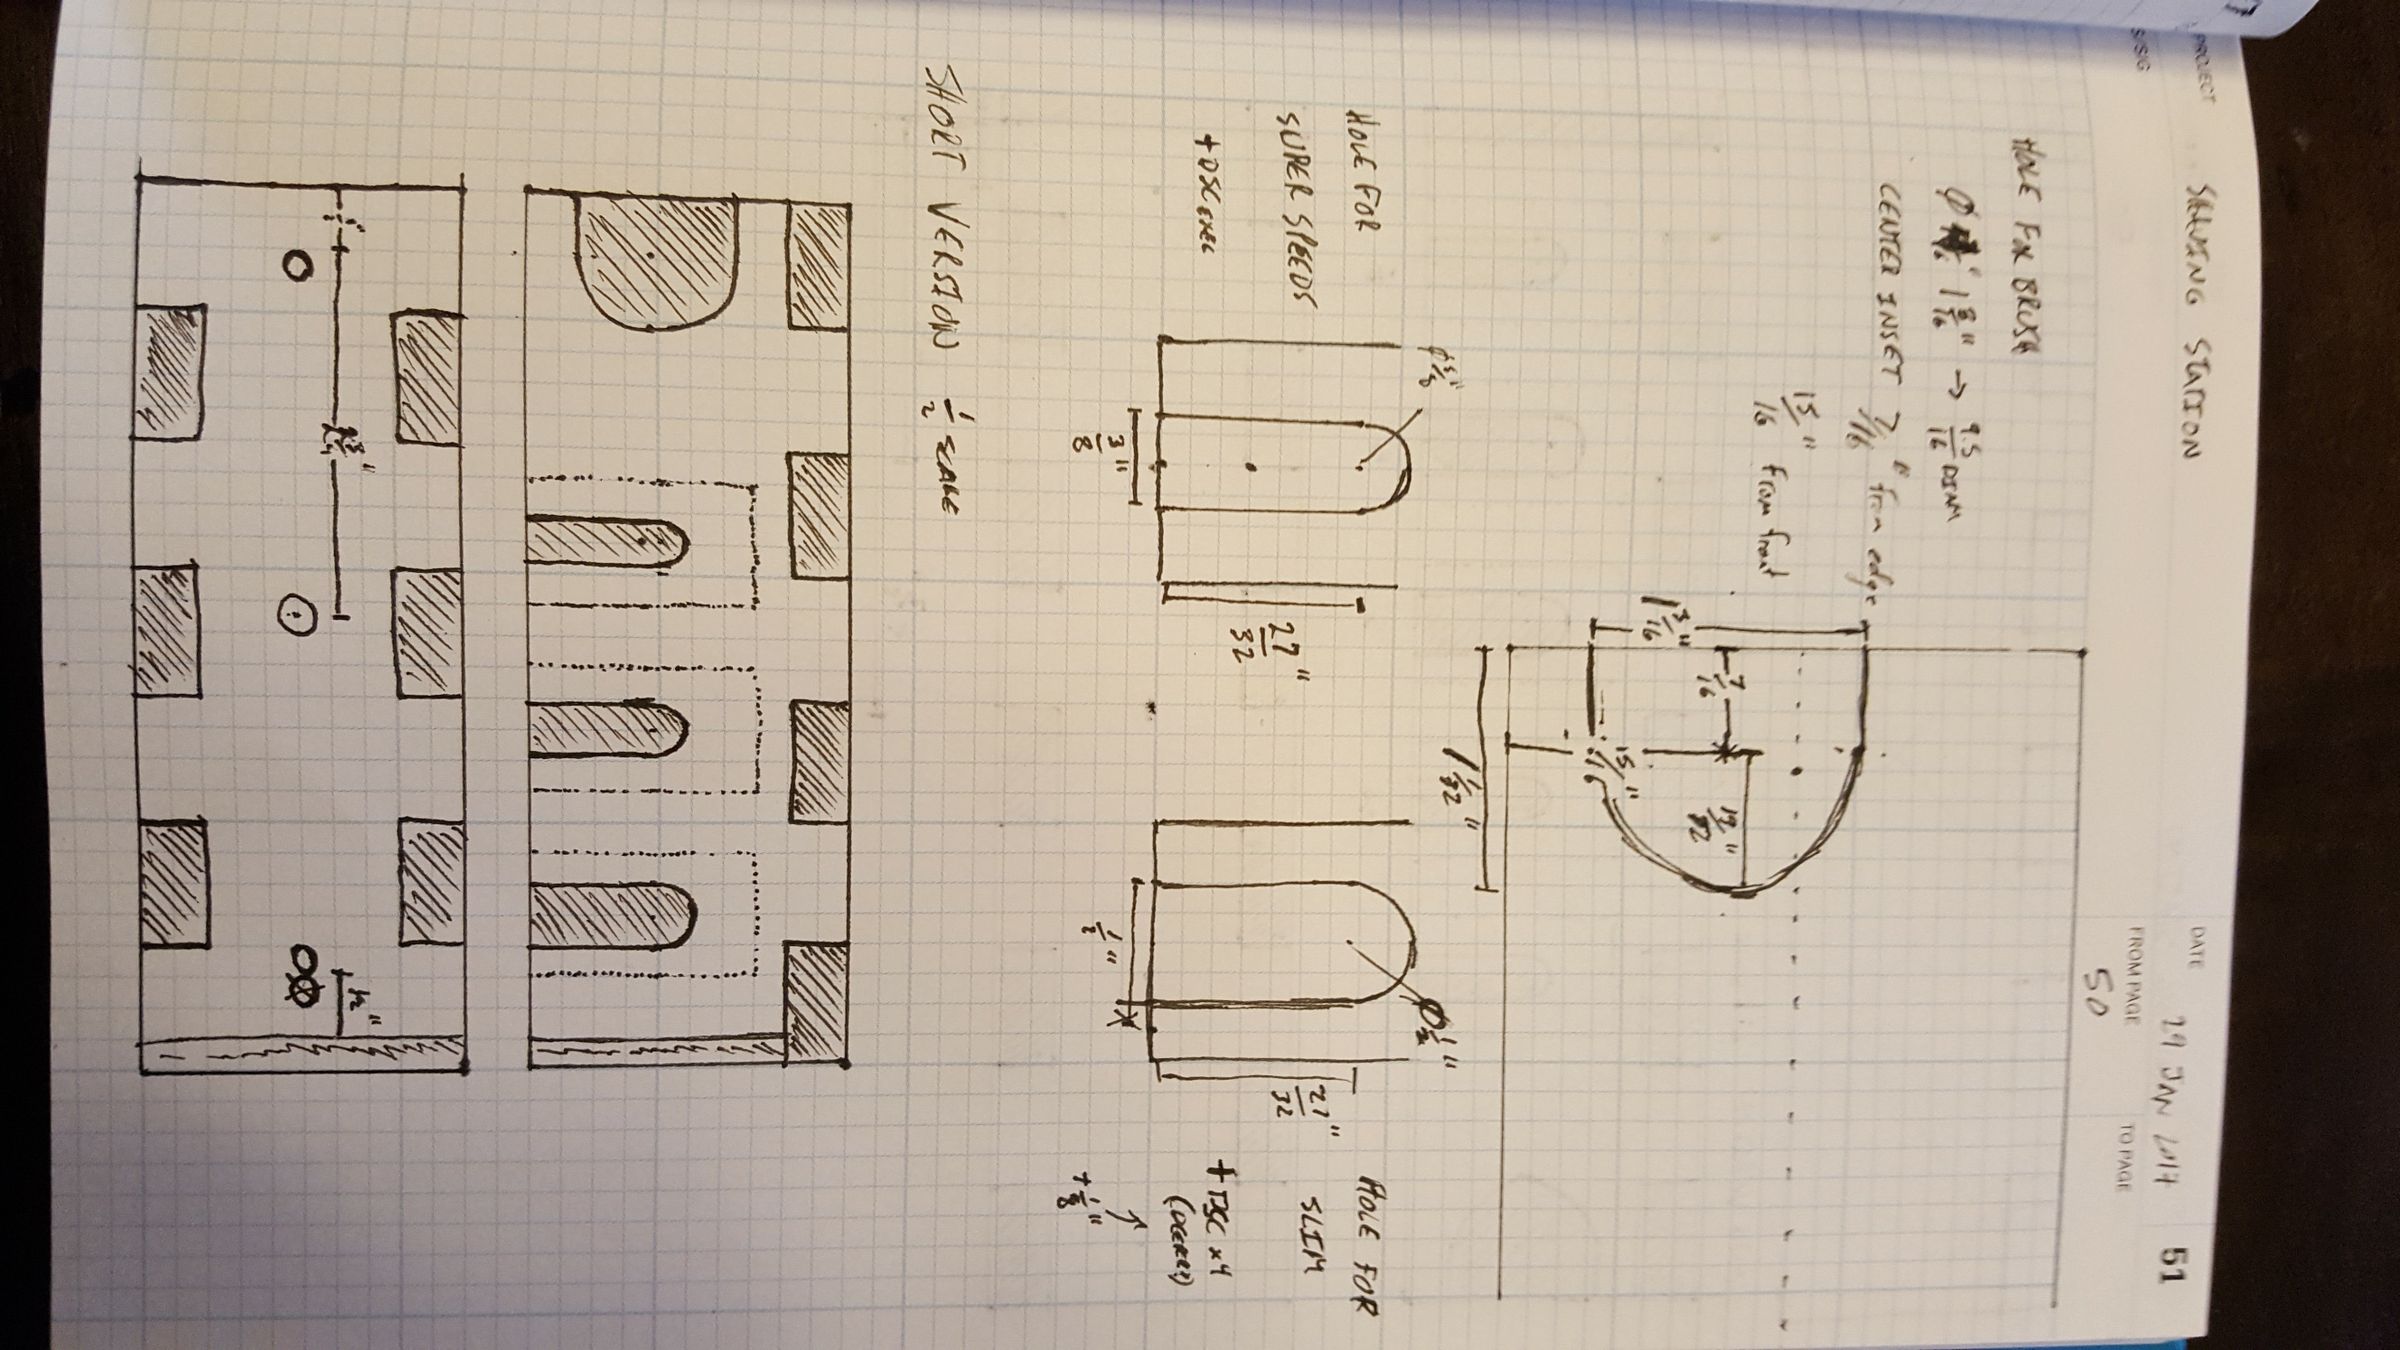 PROJECT
SHAVING STATION
DATE 29 JAN 2017
51
FROM PAGE
50
TO PAGE
HOLE FOR BRUSH
1 3/16" → 9.5/16 DIAM
CENTER INSET 7/16" from edge
15/16" from front
1 3/16"
7/16
15/16"
19/32"
1 1/32"
HOLE FOR
SUPER SPEEDS
Ø 3/8"
3/8"
27/32"
HOLE FOR
SLIM
Ø 1/2"
1/2"
21/32"
+ 1/8"
SHORT VERSION 1/2 SCALE
1/2"